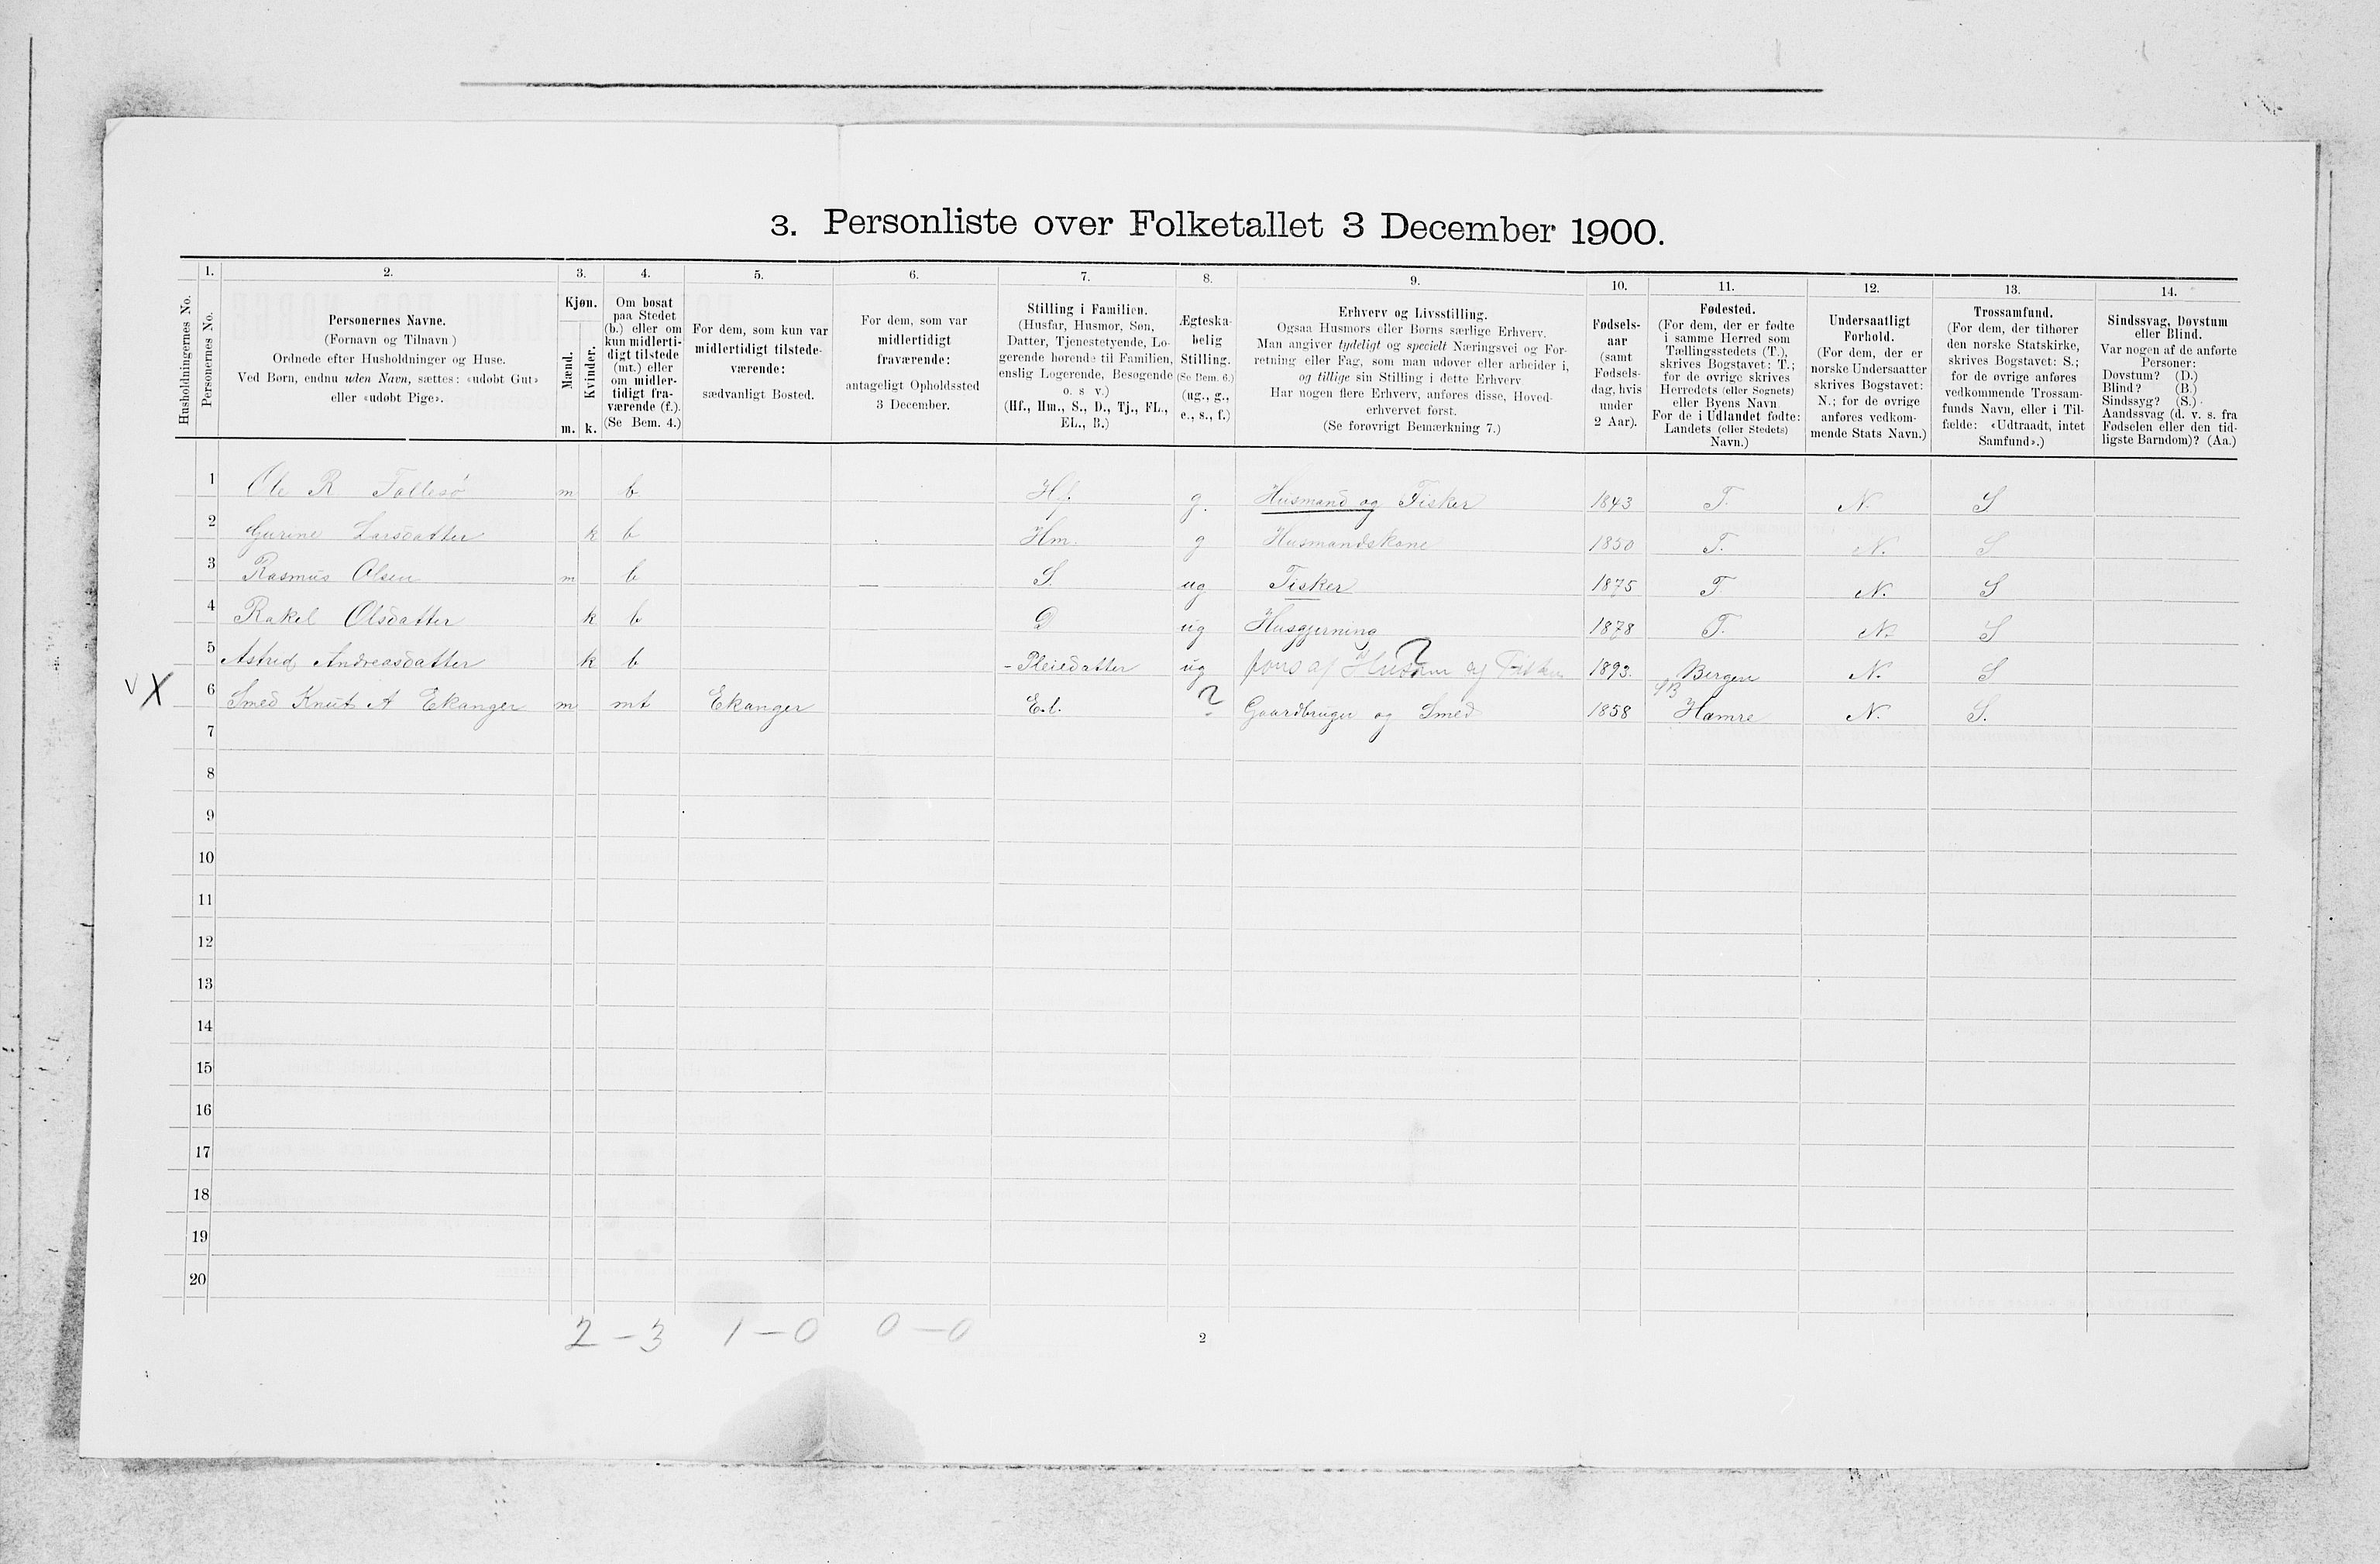 3. Personliste over Folketallet 3 December 1900.
Husholdningernes No.
1.
Personernes No.
2.
Personernes Navne.
(Fornavn og Tilnavn)
Ordnede efter Husholdninger og Huse.
Ved Børn, endnu uden Navn, sættes: «udøbt Gut»
eller «udøbt Pige».
3.
Kjøn.
Mænd.
Kvinder.
m. k.
4.
Om bosat
paa Stedet
(b.) eller om
kun midlerti-
digt tilstede
(mt.) eller
om midler-
tidigt fra-
værende (f.).
(Se Bem. 4.)
5.
For dem, som kun var
midlertidigt tilstede-
værende:
sædvanligt Bosted.
6.
For dem, som var
midlertidigt
fraværende:
antageligt Opholdssted
3 December.
7.
Stilling i Familien.
(Husfar, Husmor, Søn,
Datter, Tjenestetyende, Lo-
gerende hørende til Familien,
enslig Logerende, Besøgende
o. s v.)
(Hf., Hm., S., D., Tj., FL.,
EL., B.)
8.
Ægteska-
belig
Stilling.
(Se Bem. 6.)
(ug., g.,
e., s., f.)
9.
Erhverv og Livsstilling.
Ogsaa Husmors eller Børns særlige Erhverv.
Man angiver tydeligt og specielt Næringsvei og For-
retning eller Fag, som man udøver eller arbeider i,
og tillige sin Stilling i dette Erhverv.
Har nogen flere Erhverv, anføres disse, Hoved-
erhvervet først.
(Se forøvrigt Bemærkning 7.)
10.
Fødsels-
aar
(samt
Fødsels-
dag, hvis
under
2 Aar).
11.
Fødested.
(For dem, der er fødte
i samme Herred som
Tællingsstedets (T.),
skrives Bogstavet: T.;
for de øvrige skrives
Herredets (eller Sognets)
eller Byens Navn
For de i Udlandet fødte:
Landets (eller Stedets)
Navn.)
12.
Undersaatligt
Forhold.
(For dem, der er
norske Undersaatter
skrives Bogstavet:
N.; for de øvrige
anføres vedkom-
mende Stats Navn.)
13.
Trossamfund.
(For dem, der tilhører
den norske Statskirke,
skrives Bogstavet: S.;
for de øvrige anføres
vedkommende Trossam-
funds Navn, eller i Til-
fælde: «Udtraadt, intet
Samfund».)
14.
Sindssvag, Døvstum
eller Blind.
Var nogen af de anførte
Personer:
Døvstum? (D.)
Blind? (B.)
Sindssyg? (S.)
Aandssvag (d. v. s. fra
Fødselen eller den tid-
ligste Barndom)? (Aa.)
1 Ole R Toltesø m b. Hf. g. Husmand og Fisker 1843 T. N. S
2 Gurine Larsdatter k b Hm. g Husmandskone 1850 T. N. S
3 Rasmus Olsen m b — S. ug Fisker 1875 T N. S
4 Rakel Olsdatter k b D ug Husgjerning 1878 T. N. S
5 Astrid Andreasdatter k b - Pleiedatter ug fors af Husm og Fisker ? 1893. Bergen N. S
v X 6 Smed Knut A Ekanger m mt Ekanger E.l. ? Gaardbruger og Smed 1858 SB Hamre N. S.
7
8
9
10
11
12
13
14
15
16
17
18
19
20
2 – 3 1 – 0 0 – 0
2